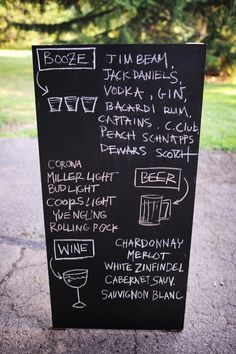 BOOZE
JIM BEAM,
JACK DANIELS,
VODKA, GIN,
BACARDI RUM,
CAPTAINS, C.CLUB,
PEACH SCHNAPPS
DEWARS SCOTCH
CORONA
MILLER LIGHT
BUD LIGHT
COORS LIGHT
YUENGLING
ROLLING ROCK
BEER
WINE
CHARDONNAY
MERLOT
WHITE ZINFINDEL
CABERNET SAUV.
SAUVIGNON BLANC